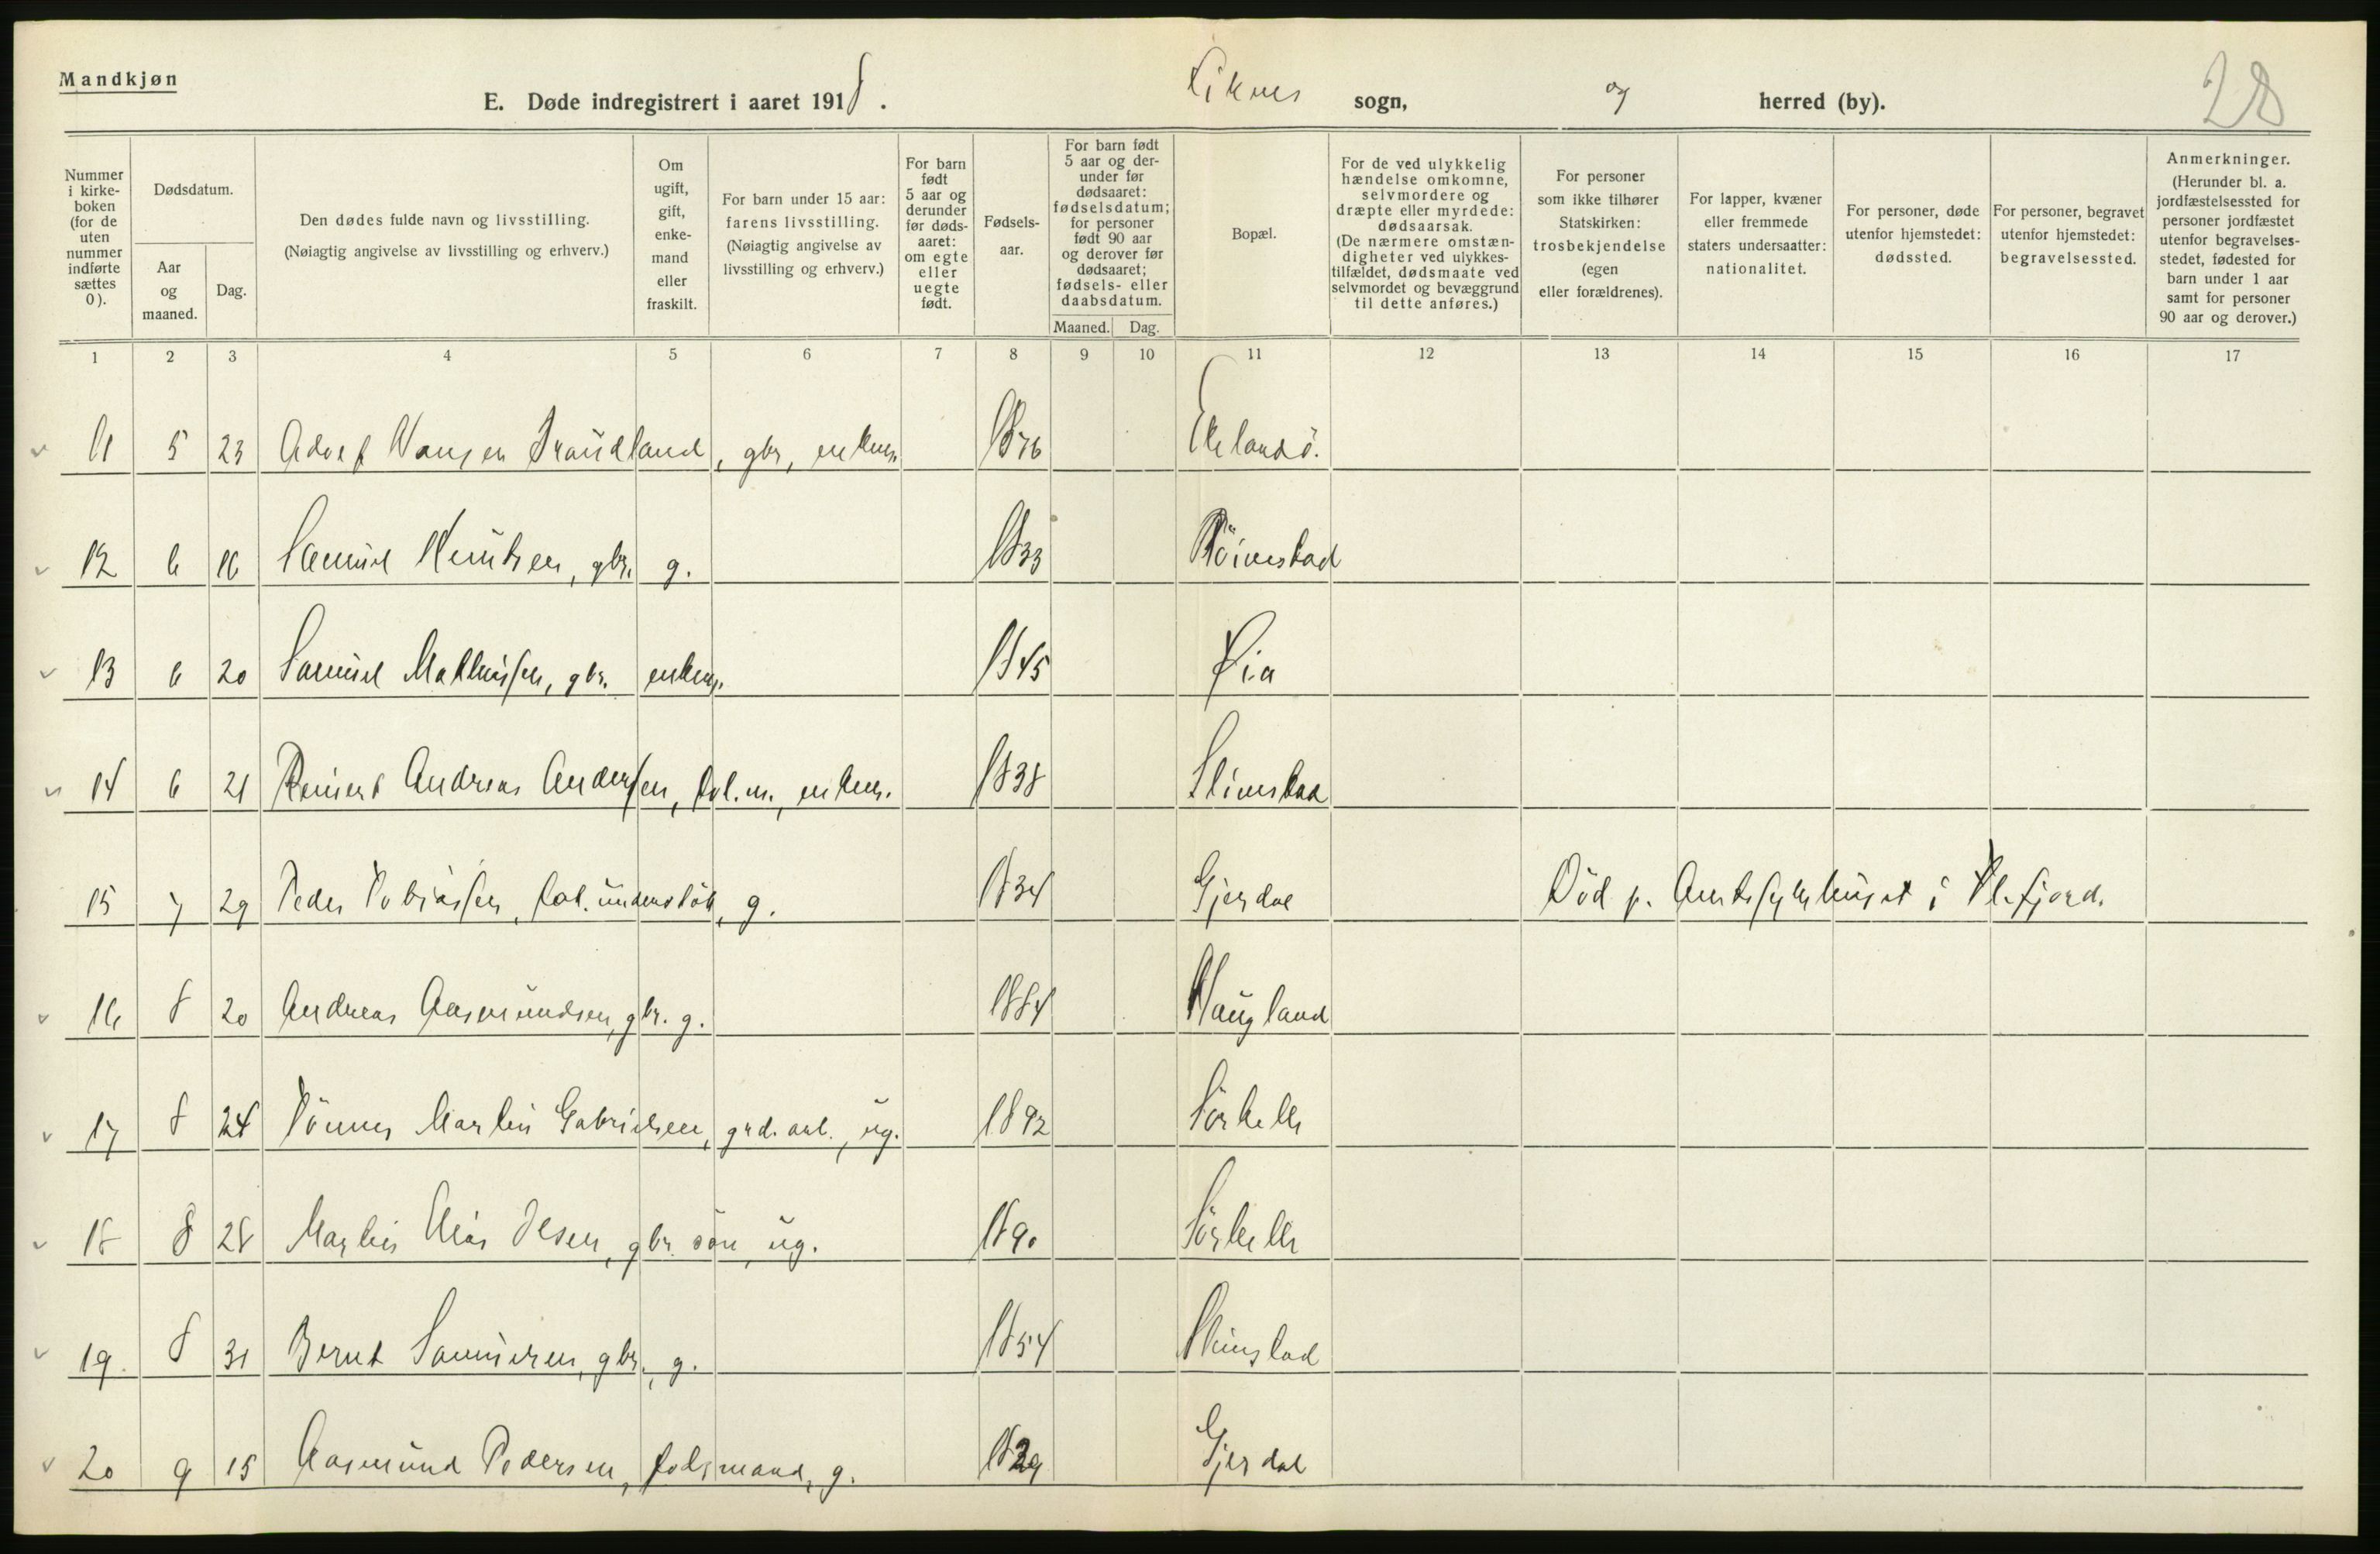 Mandkjøn
E. Døde indregistrert i aaret 1918. Liknes sogn, og herred (by). 28
Nummer i kirkeboken (for de uten nummer indførte sættes 0).
Dødsdatum.
Aar og maaned.
Dag.
Den dødes fulde navn og livsstilling.
(Nøiagtig angivelse av livsstilling og erhverv.)
Om ugift, gift, enkemand eller fraskilt.
For barn under 15 aar: farens livsstilling. (Nøiagtig angivelse av livsstilling og erhverv.)
For barn født 5 aar og derunder før dødsaaret: om egte eller uegte født.
Fødselsaar.
For barn født 5 aar og derunder før dødsaaret: fødselsdatum; for personer født 90 aar og derover før dødsaaret; fødsels- eller daabsdatum.
Maaned. Dag.
Bopæl.
For de ved ulykkelig hændelse omkomne, selvmordere og dræpte eller myrdede: dødsaarsak. (De nærmere omstændigheter ved ulykkestilfældet, dødsmaate ved selvmordet og bevæggrund til dette anføres.)
For personer som ikke tilhører Statskirken: trosbekjendelse (egen eller forældrenes).
For lapper, kvæner eller fremmede staters undersaatter: nationalitet.
For personer, døde utenfor hjemstedet: dødssted.
For personer, begravet utenfor hjemstedet: begravelsessted.
Anmerkninger. (Herunder bl. a. jordfæstelsessted for personer jordfæstet utenfor begravelsesstedet, fødested for barn under 1 aar samt for personer 90 aar og derover.)
1 2 3 4 5 6 7 8 9 10 11 12 13 14 15 16 17
11 5 23 Adolf Hansen Traudland, gbr, enkem. 1876 Eelandsö.
12 6 16 Samuel Knutsen, gbr. g. 1833 Röinestad
13 6 20 Samuel Mathiassen, gbr. enkem. 1845 Øia
14 6 21 Reinert Andreas Andersen, fol.m., enkem. 1838 Slimestad
15 7 29 Peder Tobiassen, fat. understöt, g. 1834 Gjerdal Död p. Amtssykehuset i Fl.fjord.
16 8 20 Andreas Aasmundsen, gbr. g. 1884 Haugland
17 8 24 Tönnes Martin Gabrielsen, grd. arb., ug. 1892 Sörhelle
18 8 28 Martin Elias Olsen, gbr. sön, ug. 1890 Sörhelle
19. 8 31 Bernt Samuelsen, gbr., g. 1854
20 9 15 Aasmund Pedersen, folgmand, g. 1829 Gjerdal